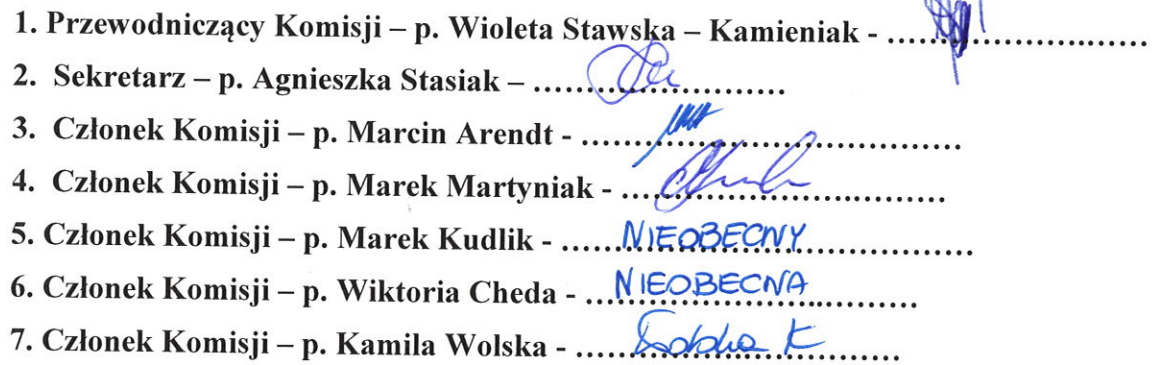 1. Przewodniczący Komisji – p. Wioleta Stawska – Kamieniak - ..............................
2. Sekretarz – p. Agnieszka Stasiak – ..........................
3. Członek Komisji – p. Marcin Arendt - ........................................
4. Członek Komisji – p. Marek Martyniak - ..................................
5. Członek Komisji – p. Marek Kudlik - ......NIEOBECNY..................
6. Członek Komisji – p. Wiktoria Cheda - ...NIEOBECNA............
7. Członek Komisji – p. Kamila Wolska - ..................................